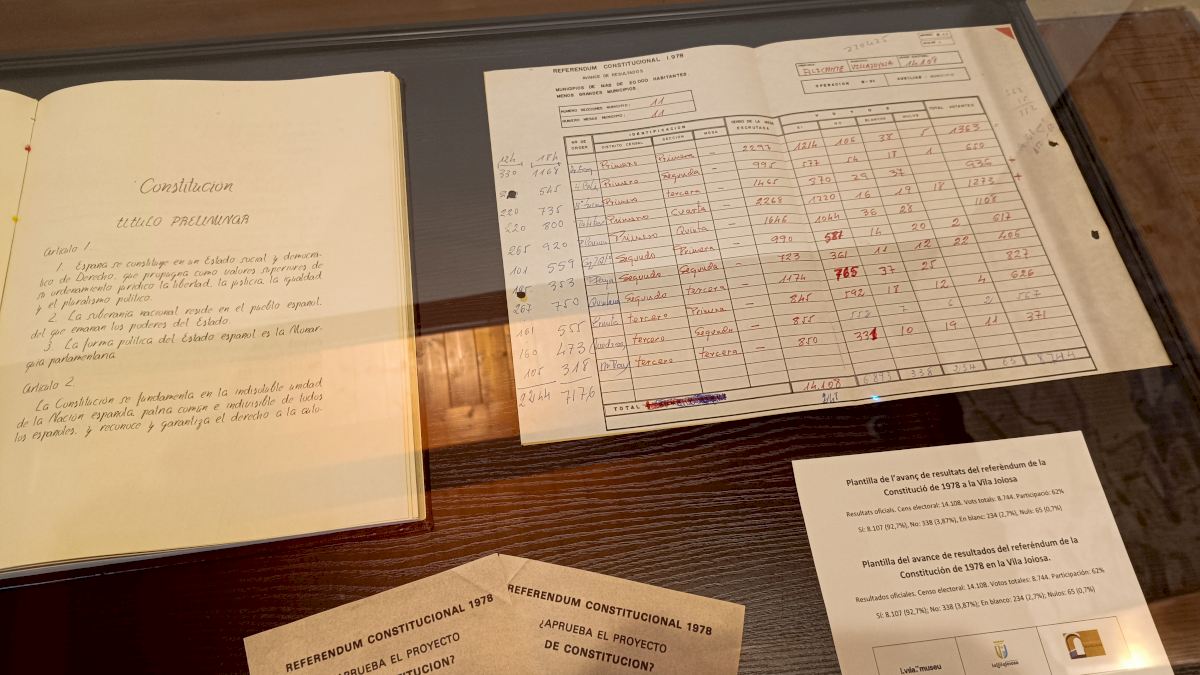 Constitucion
TITULO PRELIMINAR
Artículo 1.
1. España se constituye en un Estado social y democrá-
tico de Derecho, que propugna como valores superiores de
su ordenamiento jurídico la libertad, la justicia, la igualdad
y el pluralismo político.
2. La soberanía nacional reside en el pueblo español,
del que emanan los poderes del Estado.
3. La forma política del Estado español es la Monar-
quía parlamentaria.
Artículo 2.
La Constitución se fundamenta en la indisoluble unidad
de la Nación española, patria común e indivisible de todos
los españoles, y reconoce y garantiza el derecho a la auto-
REFERENDUM CONSTITUCIONAL 1.978
AVANCE DE RESULTADOS
MUNICIPIOS DE MAS DE 20.000 HABITANTES.
MENOS GRANDES MUNICIPIOS.
NUMERO SECCIONES MUNICIPIO: 11
NUMERO MESAS MUNICIPIO: 11
ALICANTE VILLAJOYOSA 14.108
IDENTIFICACION
NR DE ORDEN DISTRITO CENSAL SECCION MESA CENSO DE LA MESA ESCRUTADA SI NO BLANCOS NULOS TOTAL VOTANTES
12h 18h
330 1168 Primero Primera - 2297 1214 106 38 5 1363
545 Primero Segunda - 995 577 54 18 1 650
220 735 Primero tercera - 1465 370 29 37 936
220 800 Primero Cuarta - 2268 1220 16 19 18 1273
265 920 Primero Quinta - 1646 1044 36 28 1108
101 559 Segundo Primera - 990 581 14 20 2 617
353 Segundo Segunda - 723 361 11 12 22 406
267 750 Segundo tercera - 1174 765 37 25 827
161 555 tercero Primera - 845 592 18 12 4 626
160 473 tercero Segunda - 855 552 7 6 2 567
105 318 tercero tercera - 850 331 10 19 11 371
2244 7176
TOTAL 14.108 338 234 65 8744
Plantilla de l’avanç de resultats del referèndum de la
Constitució de 1978 a la Vila Joiosa
Resultats oficials. Cens electoral: 14.108. Vots totals: 8.744. Participació: 62%
Sí: 8.107 (92,7%), No: 338 (3,87%), En blanc: 234 (2,7%), Nuls: 65 (0,7%)
Plantilla del avance de resultados del referéndum de la
Constitución de 1978 en la Vila Joiosa.
Resultados oficiales. Censo electoral: 14.108. Votos totales: 8.744. Participación: 62%
Sí: 8.107 (92,7%), No: 338 (3,87%), En blanco: 234 (2,7%), Nulos: 65 (0,7%)
vilamuseu
lavilajoiosa
REFERENDUM CONSTITUCIONAL 1978
¿APRUEBA EL PROYECTO
CONSTITUCION?
REFERENDUM CONSTITUCIONAL 1978
¿APRUEBA EL PROYECTO
DE CONSTITUCION?